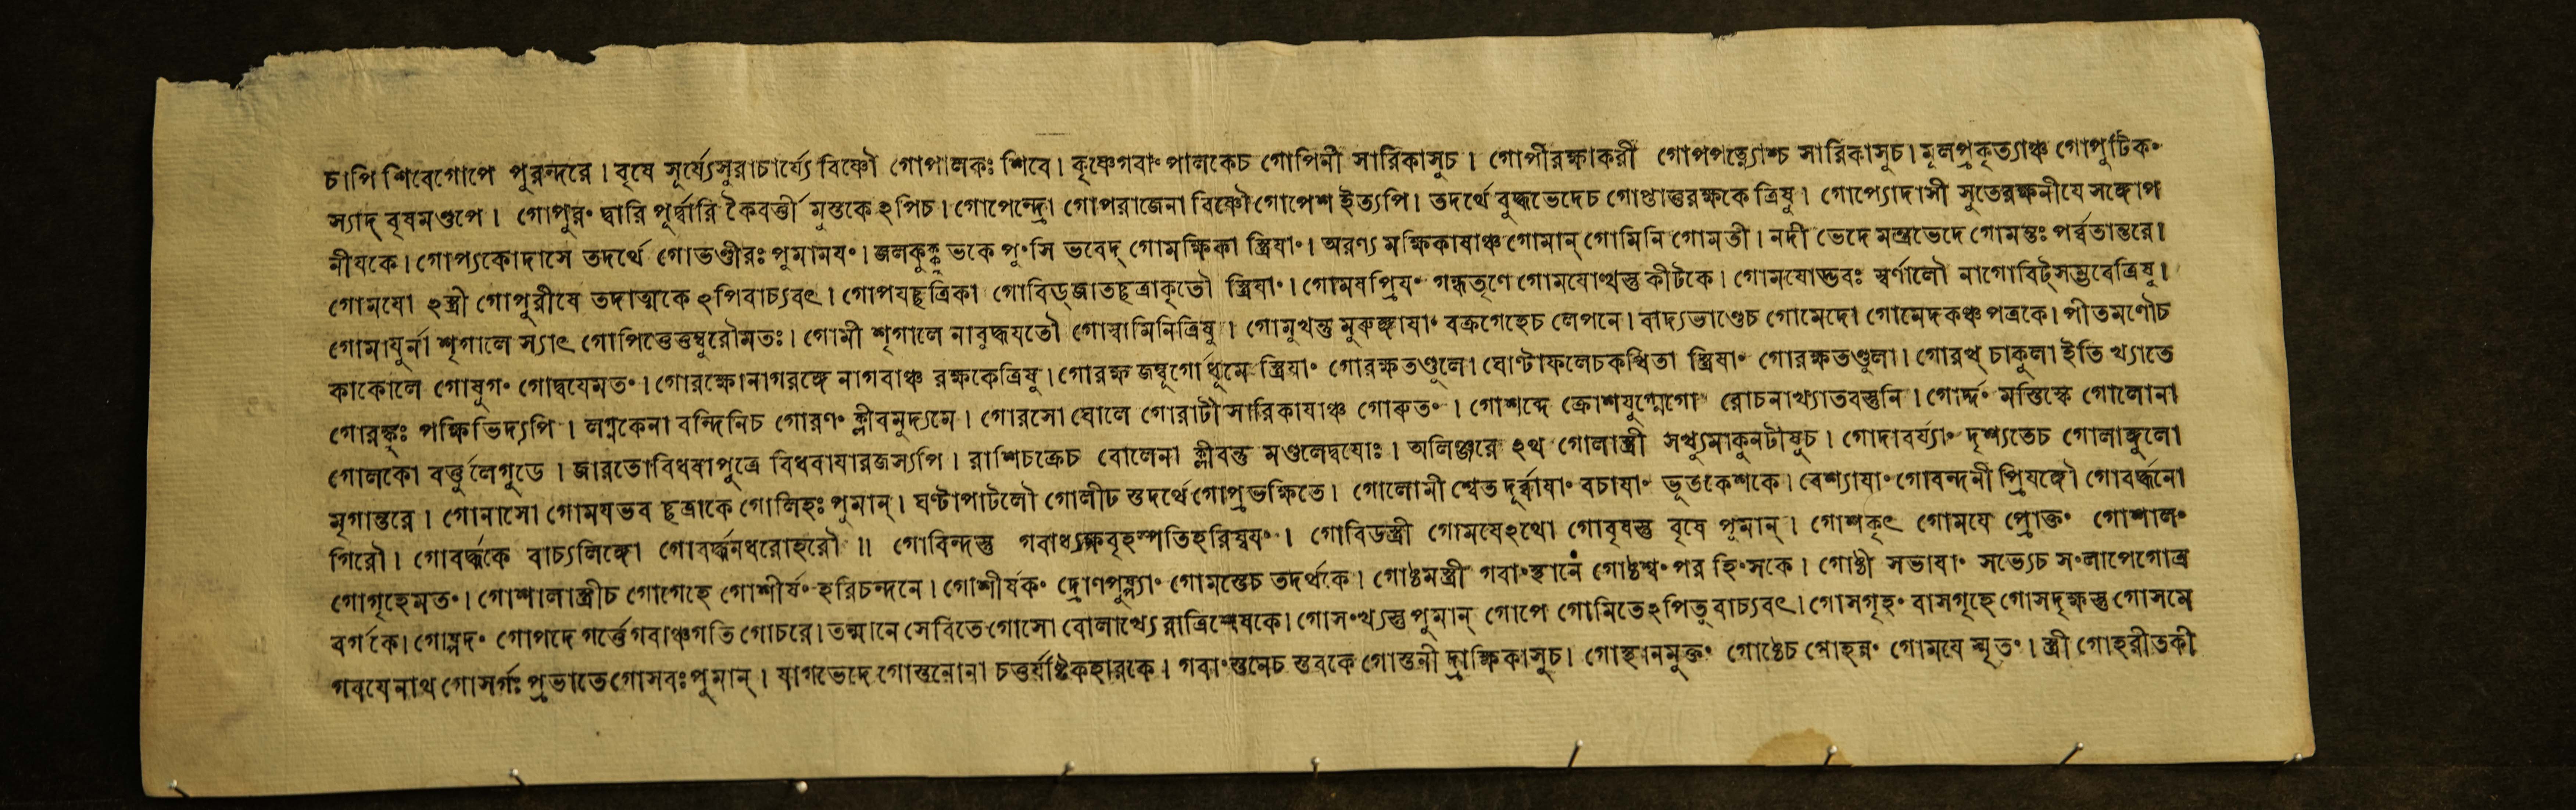 চাপি শিবেগোপে পুরন্দরে । বৃষে সূর্য্যেসুরাচার্য্যে বিষ্ণৌ গোপালকঃ শিবে । কৃষ্ণেগবাং পালকেচ গোপিনী সারিকাসুচ । গোপীরক্ষাকরী গোপপত্ন্যোশ্চ সারিকাসুচ । মূলপ্রকৃত্যাঞ্চ গোপুটিকং
স্যাদ্ বৃষমণ্ডপে । গোপুরং দ্বারি পূর্দ্বারি কৈবর্ত্তী মুস্তকে ঽপিচ । গোপেন্দ্রো গোপরাজেনা বিষ্ণৌ গোপেশ ইত্যপি । তদর্থে বুদ্ধভেদেচ গোপ্তাত্তুরক্ষকে ত্রিষু । গোপ্যোদাসী সুতেরক্ষনীযে সঙ্গোপ
নীযকে । গোপ্যকোদাসে তদর্থে গোভণ্ডীরঃ পুমানযং । জলকুক্কুভকে পুংসি ভবেদ্ গোমক্ষিকা স্ত্রিযাং । অরণ্য মক্ষিকাযাঞ্চ গোমান্ গোমিনি গোমতী । নদী ভেদে মন্ত্রভেদে গোমন্তঃ পর্ব্বতান্তরে ।
গোমযো ঽস্ত্রী গোপুরীষে তদাত্মকে ঽপিবাচ্যবৎ । গোপযছত্রিকা গোবিড্জাতছত্রাকৃতৌ স্ত্রিযাং । গোমযপ্রিযং গন্ধতৃণে গোমযোত্থস্তু কীটকে । গোমযোদ্ভবঃ স্বর্ণালৌ নাগোবিট্সম্ভবেত্রিষু ।
গোমাযুর্না শৃগালে স্যাৎ গোপিত্তেত্তম্বুরৌমতঃ । গোমী শৃগালে নাবুদ্ধযতৌ গোস্বামিনিত্রিষু । গোমুখন্তু মুরুঙ্গাযাং বক্রগেহেচ লেপনে । বাদ্যভাণ্ডেচ গোমেদো গোমেদকঞ্চ পত্রকে । পীতমণৌচ
কাকোলে গোযুগং গোদ্বযেমতং । গোরক্ষোনাগরঙ্গে নাগবাঞ্চ রক্ষকেত্রিষু । গোরক্ষ জম্বূগোর্ধূমে স্ত্রিযাং গোরক্ষতণ্ডুলে । ঘোণ্টাফলেচকথিতা স্ত্রিযাং গোরক্ষতণ্ডুলা । গোরখ্ চাকুলা ইতি খ্যাতে
গোরঙ্কুঃ পক্ষিভিদ্যপি । লগ্নকেনা বন্দিনিচ গোরণং ক্লীবমুদ্যমে । গোরসো ঘোলে গোরাটী সারিকাযাঞ্চ গোরুতং । গোশব্দে ক্রোশযুগ্মেগো রোচনাখ্যাতবস্তুনি । গোর্দ্দং মস্তিষ্কে গোলোনা
গোলকো বর্ত্তুলেগুডে । জারতোবিধবাপুত্রে বিধবাযারজস্যপি । রাশিচক্রেচ বোলেনা ক্লীবন্তু মণ্ডলেদ্বযোঃ । অলিঞ্জরে ঽথ গোলাস্ত্রী সখ্যুমাকুনটীষুচ । গোদাবর্য্যাং দৃশ্যতেচ গোলাঙ্গুলো
মৃগান্তরে । গোনাসো গোমযভব ছত্রাকে গোলিহঃ পুমান্ । ঘণ্টাপাটলৌ গোলীঢ স্তদর্থে গোপ্রভক্ষিতে । গোলোমী শ্বেত দূর্ব্বাযাং বচাযাং ভূতকেশকে । বেশ্যাযাং গোবন্দনী প্রিযঙ্গৌ গোবর্দ্ধনো
গিরৌ । গোবর্দ্ধকে বাচ্যলিঙ্গো গোবর্দ্ধনধরোহরৌ ॥ গোবিন্দস্তু গবাধ্যক্ষবৃহস্পতিহরিষ্বযং । গোবিডস্ত্রী গোমযেঽথো গোবৃষস্তু বৃষে পুমান্ । গোশকৃৎ গোমযে প্রোক্তং গোশালং
গোগৃহেমতং । গোশালাস্ত্রীচ গোগেহে গোশীর্ষং হরিচন্দনে । গোশীর্ষকং দ্রোণপুষ্প্যাং গোমস্তেচ তদর্থকে । গোষ্ঠমস্ত্রী গবাংস্থানে গোষ্ঠশ্বং পর হিংসকে । গোষ্ঠী সভাযাং সভ্যেচ সংলাপেগোত্র
বর্গকে । গোষ্পদং গোপদে গর্ত্তেগবাঞ্চগতি গোচরে । তন্মানে সেবিতে গোসো বোলাখ্যে রাত্রিশেষকে । গোসংখ্যস্তু পুমান্ গোপে গোমিতেঽপিতু বাচ্যবৎ । গোসগৃহং বাসগৃহে গোসদৃক্ষস্তু গোসমে
গবযেনাথ গোসর্গঃ প্রভাতে গোসবঃ পুমান্ । যাগভেদে গোস্তনোনা চতুর্যষ্টিকহারকে । গবাংস্তনেচ স্তবকে গোস্তনী দ্রাক্ষিকাসুচ । গোস্থানমুক্তং গোষ্ঠেচ গোহন্নং গোমযে স্মৃতং । স্ত্রী গোহরীতকী